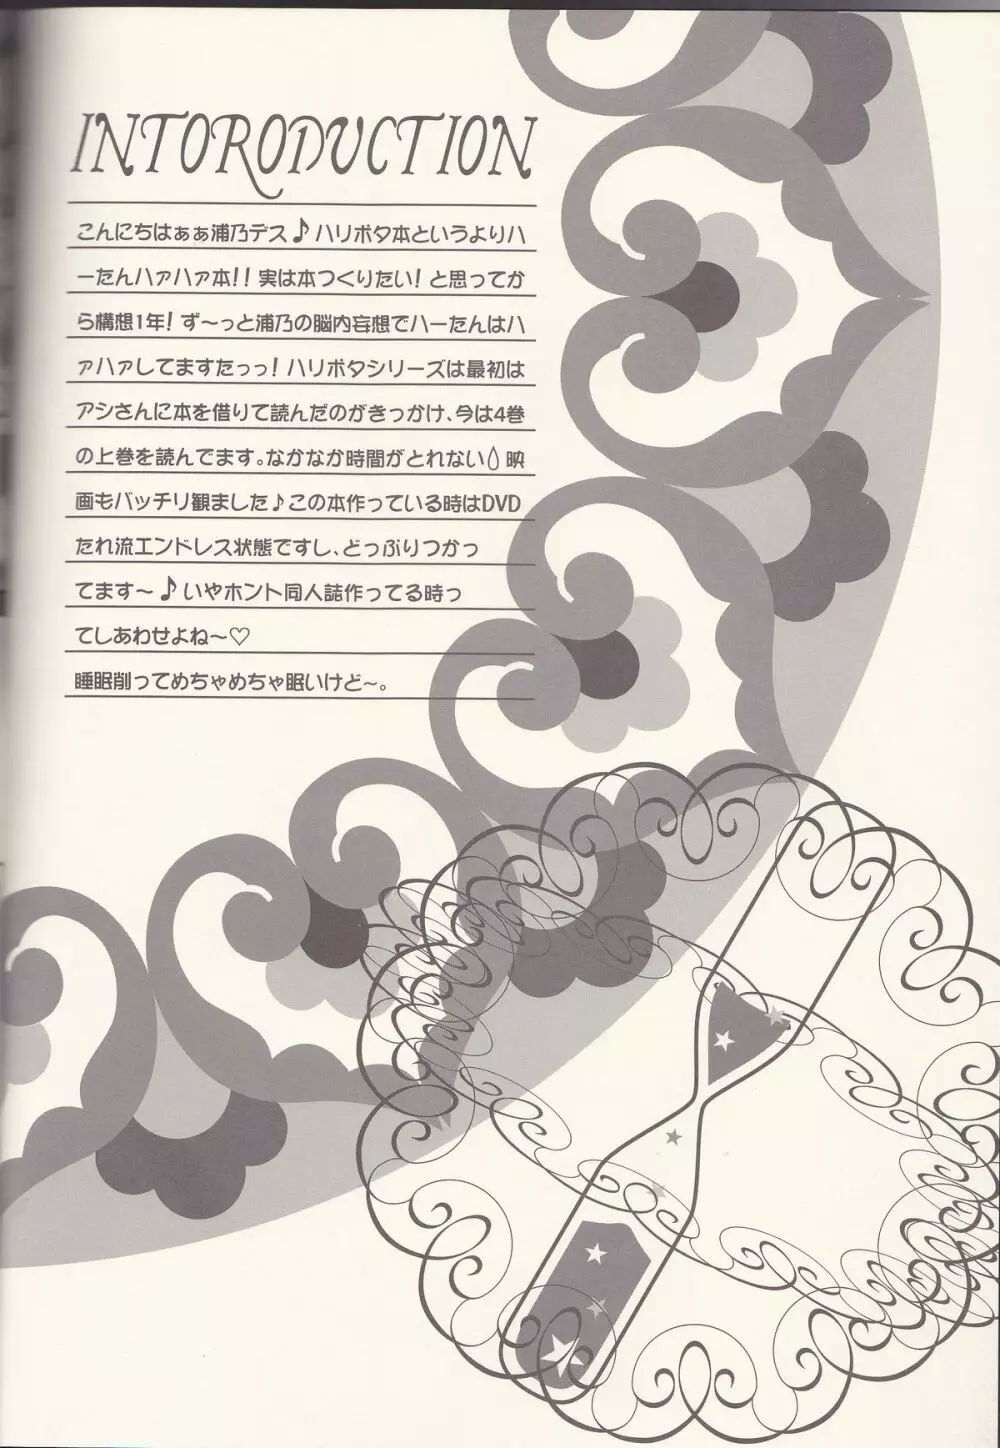 INTORODUCTION
こんにちはぁぁ浦乃デス♪ハリポタ本というよりハ
ーたんハァハァ本!!実は本つくりたい!と思ってか
ら構想1年!ず～っと浦乃の脳内妄想でハーたんはハ
ァハァしてますたっっ!ハリポタシリーズは最初は
アシさんに本を借りて読んだのがきっかけ、今は4巻
の上巻を読んでます。なかなか時間がとれない💧映
画もバッチリ観ました♪この本作っている時はDVD
たれ流エンドレス状態ですし、どっぷりつかっ
てます～♪いやホント同人誌作ってる時っ
てしあわせよね～♡
睡眠削ってめちゃめちゃ眠いけど～。